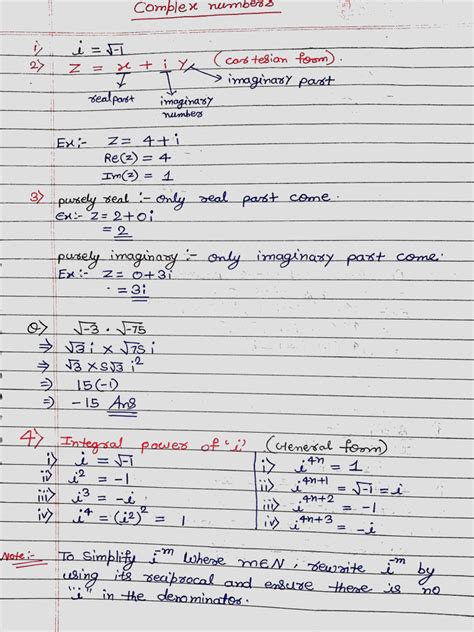 Complex numbers
1) i = √-1
2) z = x + i y (cartesian form)
imaginary part
real part imaginary number
Ex:- z = 4 + i
Re(z) = 4
Im(z) = 1
3) purely real :- only real part come.
Ex:- z = 2 + 0i
= 2
purely imaginary :- only imaginary part come.
Ex:- z = 0 + 3i
= 3i
Q) √-3 . √-75
⇒ √3 i × √75 i
⇒ √3 × 5√3 i²
⇒ 15(-1)
⇒ -15 Ans
4) Integral power of 'i' (General form)
i) i = √-1 i) i⁴ⁿ = 1
ii) i² = -1 ii) i⁴ⁿ⁺¹ = √-1 = i
iii) i³ = -i iii) i⁴ⁿ⁺² = -1
iv) i⁴ = (i²)² = 1 iv) i⁴ⁿ⁺³ = -i
Note:- To simplify i⁻ᵐ where m∈N, rewrite i⁻ᵐ by
using its reciprocal and ensure there is no
"i" in the denominator.